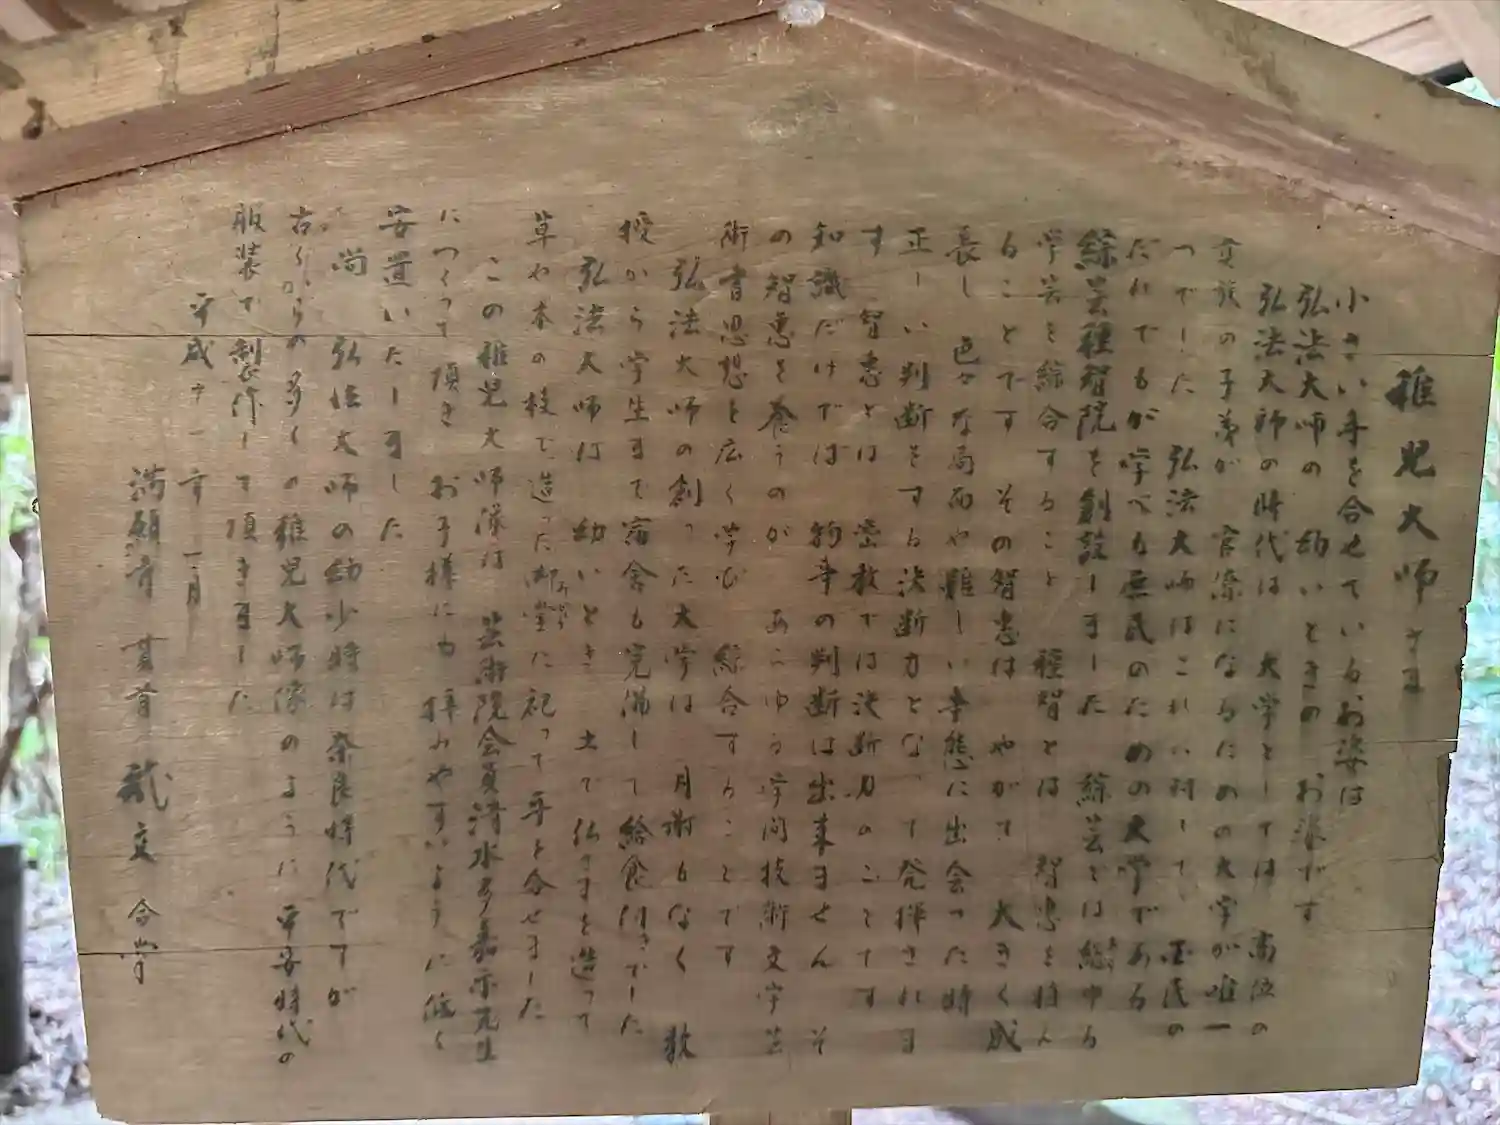 稚児大師さま
小さい手を合せているお姿は
弘法大師の 幼いときの お姿です
弘法大師の時代は 大学としては 高位の
貴族の子弟が 官僚になるための大学が唯一
つでした 弘法大師はこれに対して、庶民の
だれでもが学べる庶民のための大学である
綜芸種智院を創設しました 綜芸とは総ゆる
学芸を綜合すること 種智とは 智恵を植ん
ることです その智恵は やがて 大きく成
長し 色々な局面や難しい事態に出会った時
正しい判断をする決断力となって発揮されま
す 智恵とは 密教では決断力のことです
知識だけでは 物事の判断は出来ません そ
の智恵を養うのが あらゆる学問技術文学芸
術書思想を広く学び 綜合することです
弘法大師の創った大学は 月謝もなく 教
授から学生まで宿舎も完備して給食付きでした
弘法大師は 幼いとき 土で仏さまを造って
草や木の枝で造った御堂に祀って手を合せました
この稚児大師像は 芸術院会員清水多嘉示先生
につくって頂き お子様にも 拝みやすいように低く
安置いたしました
尚 弘法大師の幼少時は奈良時代ですが
古くからの多くの稚児大師像のように 平安時代の
服装で製作して頂きました
平成十一年一月
満願寺 貫首 龍文 合掌